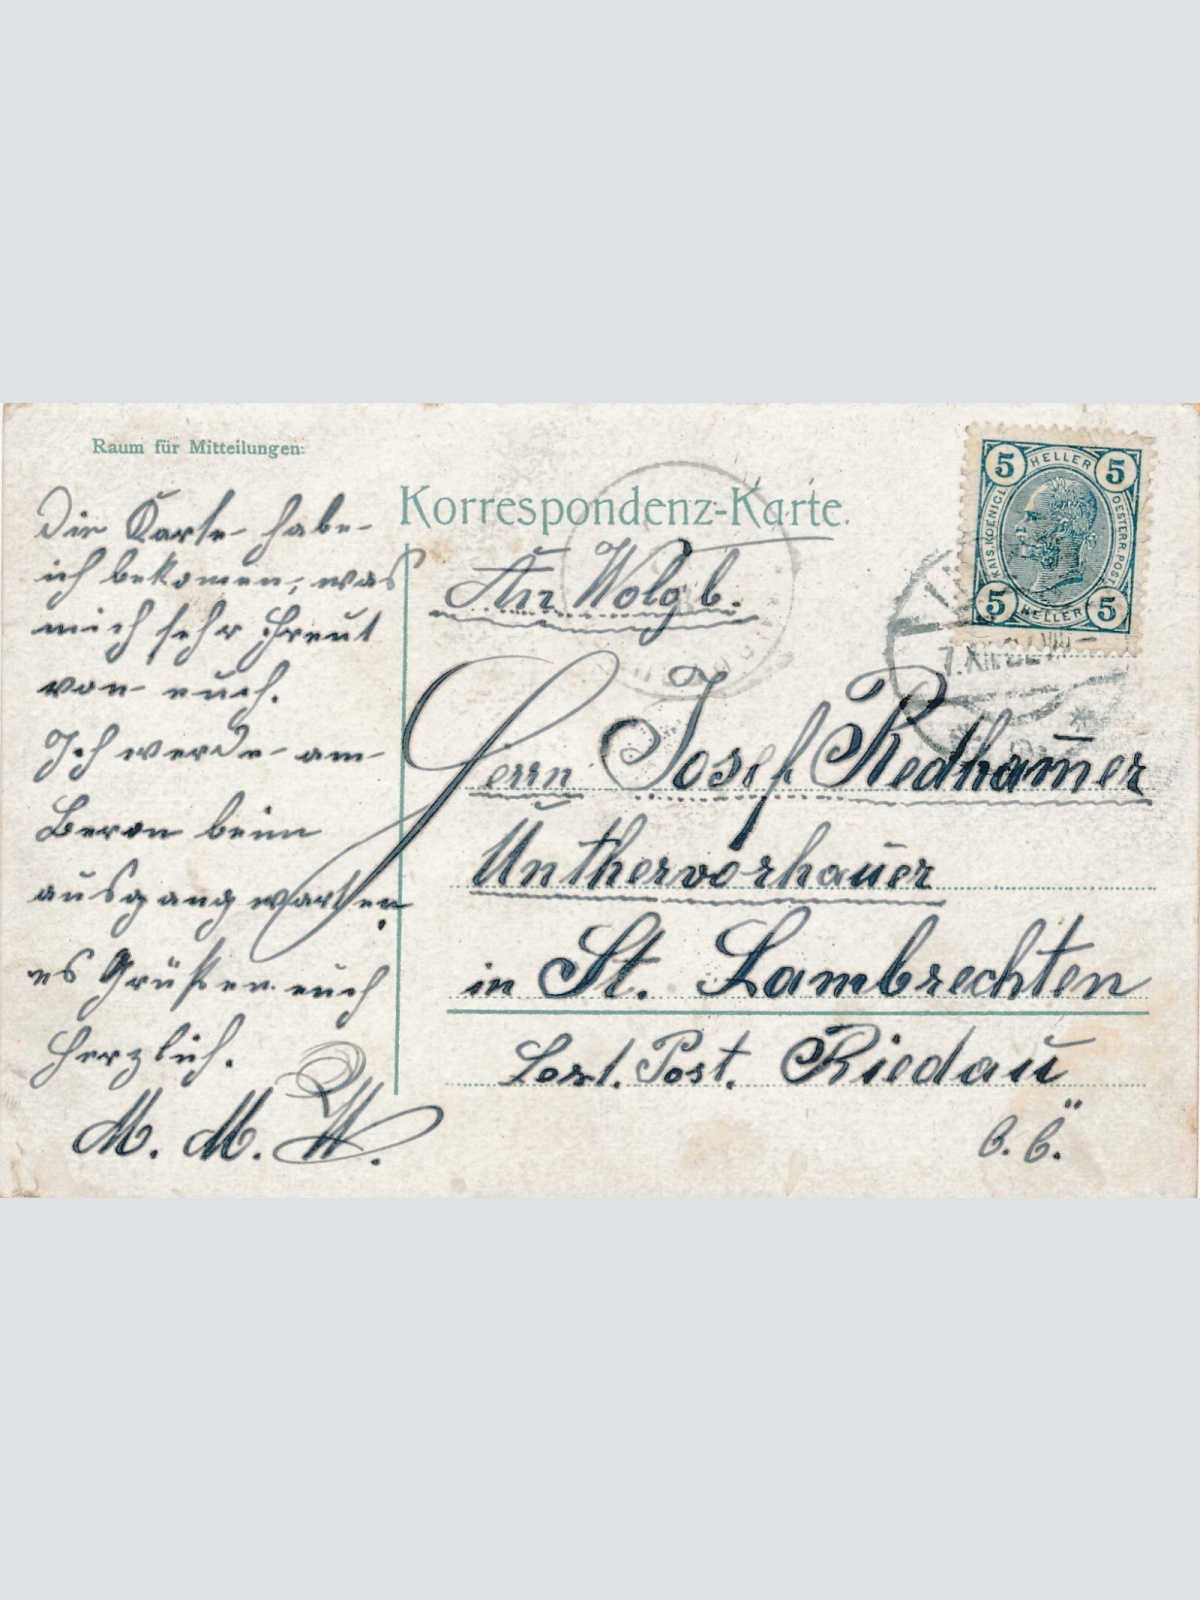 Raum für Mitteilungen:
Korrespondenz-Karte.
Die Karte habe
ich bekomen, was
mich sehr Freut
von euch.
Ich werde am
beim
ausgang warten
es Grüßen euch
Herzlich.
M. M. W.
An Wolgb.
Herrn Josef Redham̅er
Unthervorhauer
in St. Lambrechten
Post. Riedau
5 HELLER 5
KAIS. KOENIGL. OESTERR. POST.
5 HELLER 5